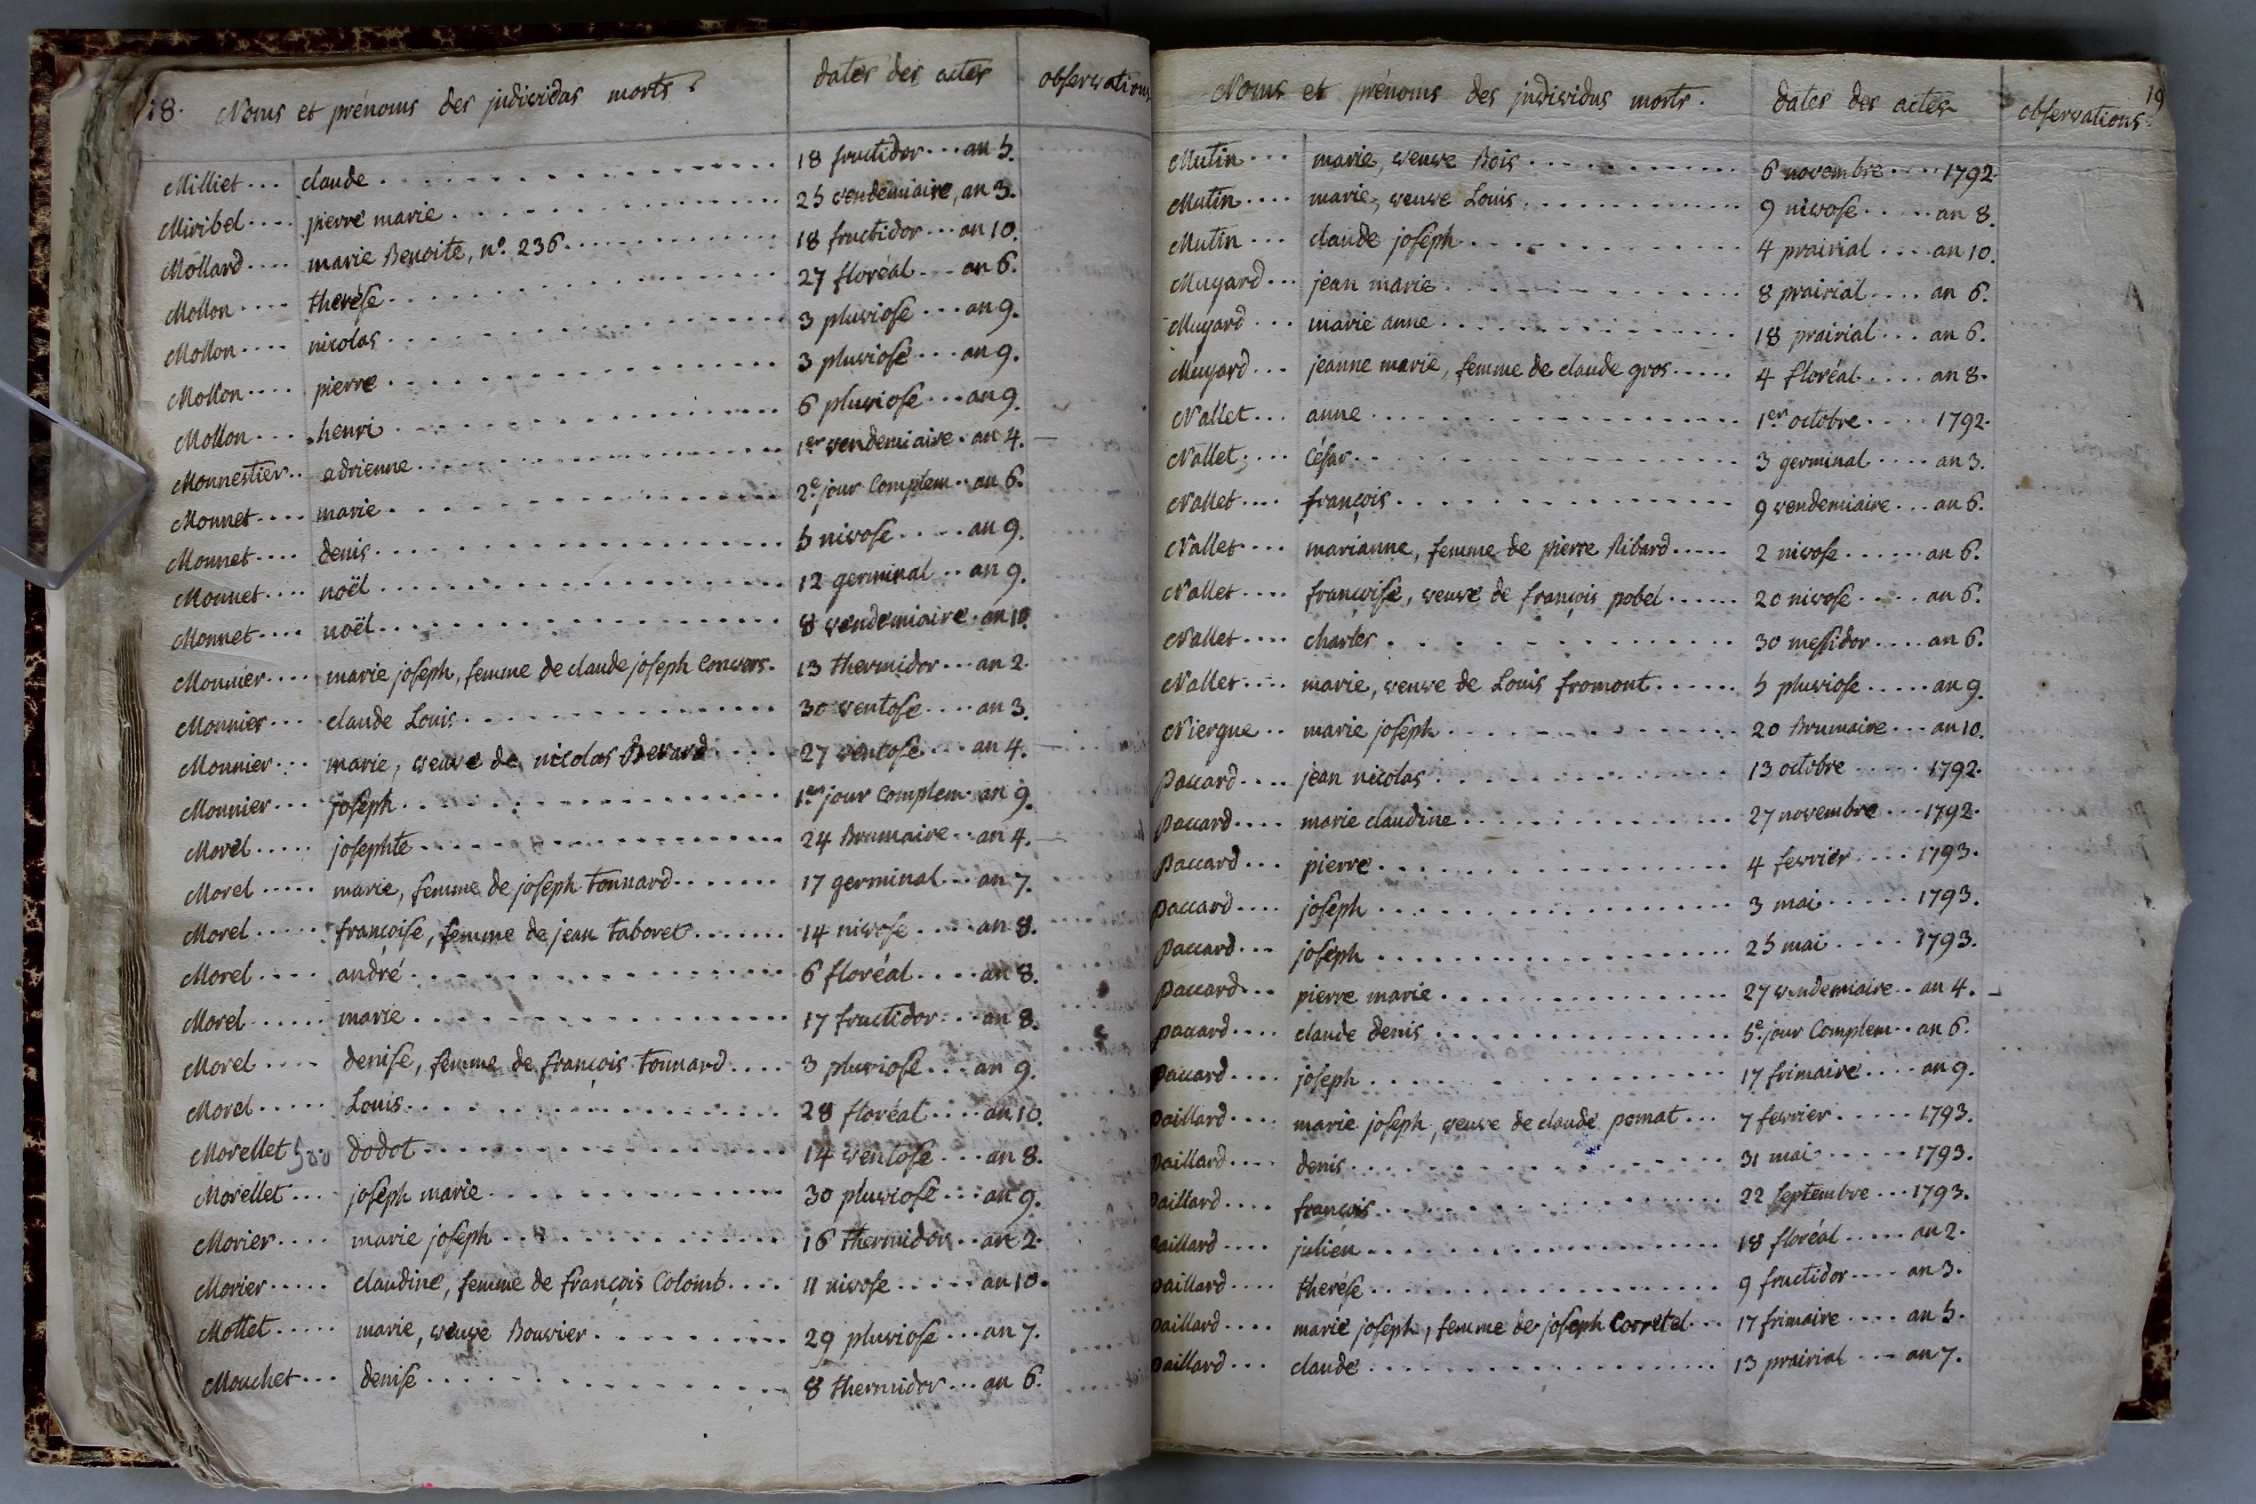 18. Noms et prénoms des individus morts. dates des actes observations
Milliet... claude... 18 fructidor... an 5.
Miribel.... pierre marie... 25 vendemiaire, an 3.
Mollard.... marie Benoite, n.º 236... 18 fructidor... an 10.
Mollon.... therése... 27 floréal... an 6.
Mollon.... nicolas... 3 pluviose... an 9.
Mollon.... pierre... 3 pluviose... an 9.
Mollon.... henri... 6 pluviose... an 9.
Monnestier.. adrienne... 1er vendemiaire. an 4. —
Monnet.... marie... 2e jour Complem.. an 6.
Monnet.... denis... 5 nivose..... an 9.
Monnet.... noël... 12 germinal.. an 9.
Monnet.... noël... 8 vendemiaire. an 10.
Monnier.... marie joseph, femme de claude joseph Convers. 13 thermidor... an 2.
Monnier... claude Louis... 30 ventose.... an 3.
Monnier... marie, veuve de nicolas Berard.... 27 ventose... an 4. —
Monnier... joseph... 1er jour Complem. an 9.
Morel..... josephte... 24 Brumaire.. an 4. —
Morel..... marie, femme de joseph tonnard....... 17 germinal... an 7.
Morel..... françoise, femme de jean taboret....... 14 nivose.... an 8.
Morel.... andré... 6 floréal.... an 8.
Morel...... marie... 17 fructidor... an 8.
Morel.... denise, femme de françois tonnard.... 3 pluviose... an 9.
Morel..... Louis... 28 floréal.... an 10.
Morellet dodot... 14 ventose... an 8.
Morellet... joseph marie... 30 pluviose... an 9.
Morier.... marie joseph... 16 thermidor.. an 2.
Morier..... claudine, femme de françois Colomb.... 11 nivose..... an 10.
Mottet..... marie, veuve Bouvier... 29 pluviose... an 7.
Mouchet... denise... 8 thermidor... an 6.
Noms et prénoms des individus morts. dates des actes observations. 19
Mutin... marie, veuve Bois... 6 novembre.... 1792.
Mutin.... marie, veuve Louis... 9 nivose..... an 8.
Mutin... claude joseph... 4 prairial.... an 10.
Muyard... jean marie... 8 prairial.... an 6.
Muyard... marie anne... 18 prairial... an 6.
Muyard... jeanne marie, femme de claude gros..... 4 floréal.... an 8.
Nallet... anne... 1er octobre.... 1792.
Nallet.... César... 3 germinal.... an 3.
Nallet.... françois... 9 vendemiaire... an 6.
Nallet.... marianne, femme de pierre Ribard..... 2 nivose...... an 6.
Nallet.... françoise, veuve de françois pobel...... 20 nivose..... an 6.
Nallet.... charles... 30 messidor.... an 6.
Nallet.... marie, veuve de Louis fromont...... 5 pluviose..... an 9.
Niergue.. marie joseph... 20 Brumaire... an 10.
paccard.... jean nicolas... 13 octobre..... 1792.
paccard.... marie claudine... 27 novembre... 1792.
paccard... pierre... 4 fevrier.... 1793.
paccard.... joseph... 3 mai...... 1793.
paccard... joseph... 25 mai..... 1793.
paccard... pierre marie... 27 vendemiaire.. an 4. —
paccard.... claude denis... 5e jour Complem.. an 6.
paccard.... joseph... 17 frimaire.... an 9.
paillard.... marie joseph, veuve de claude pomat... 7 fevrier..... 1793.
paillard.... denis... 31 mai...... 1793.
paillard.... françois... 22 septembre... 1793.
paillard.... julien... 18 floréal..... an 2.
paillard.... therése... 9 fructidor.... an 3.
paillard.... marie joseph, femme de joseph Corretel... 17 frimaire.... an 5.
paillard... claude... 13 prairial.... an 7.